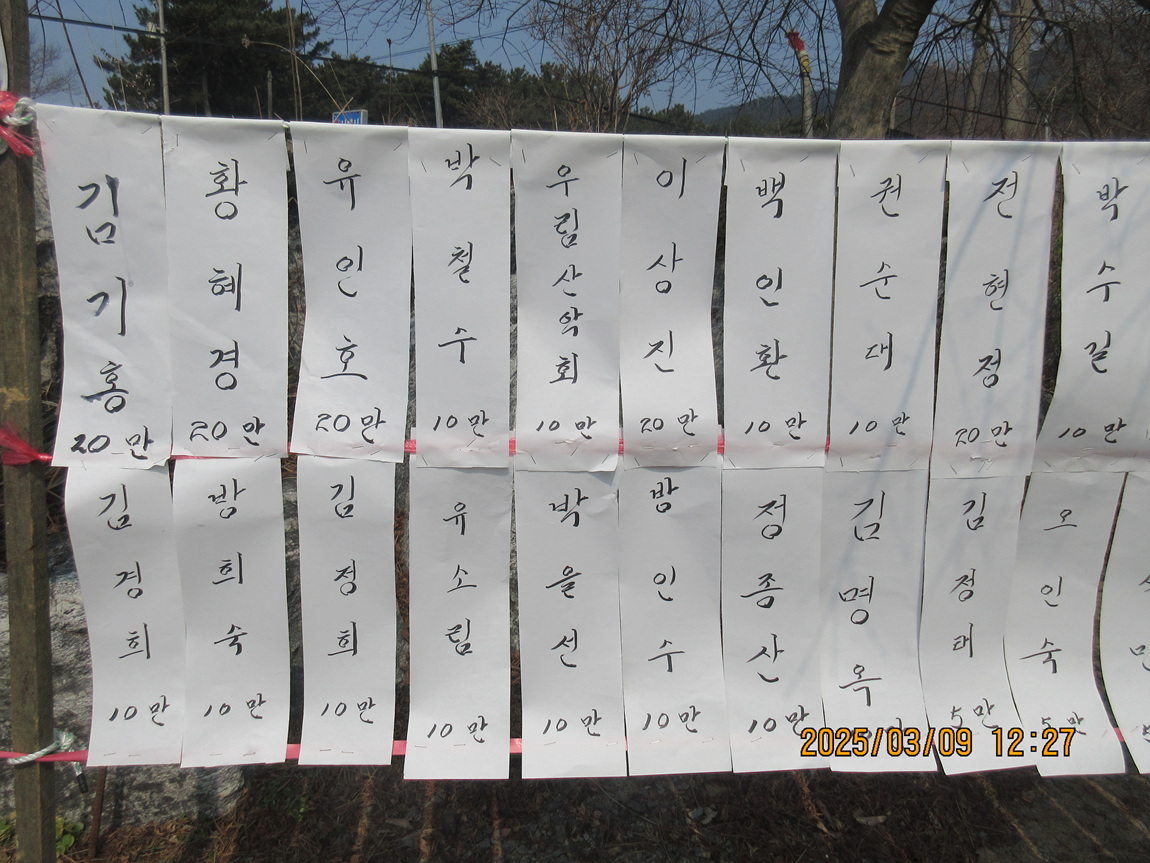 김기홍 20만
황혜경 20만
유인호 20만
박철수 10만
우림산악회 10만
이상진 20만
백인환 10만
권순대 10만
전현정 20만
박수길 10만
김경희 10만
방희숙 10만
김정희 10만
유소림 10만
박을선 10만
방인수 10만
정종산 10만
김명옥
김정태 5만
오인숙 5만
2025/03/09 12:27